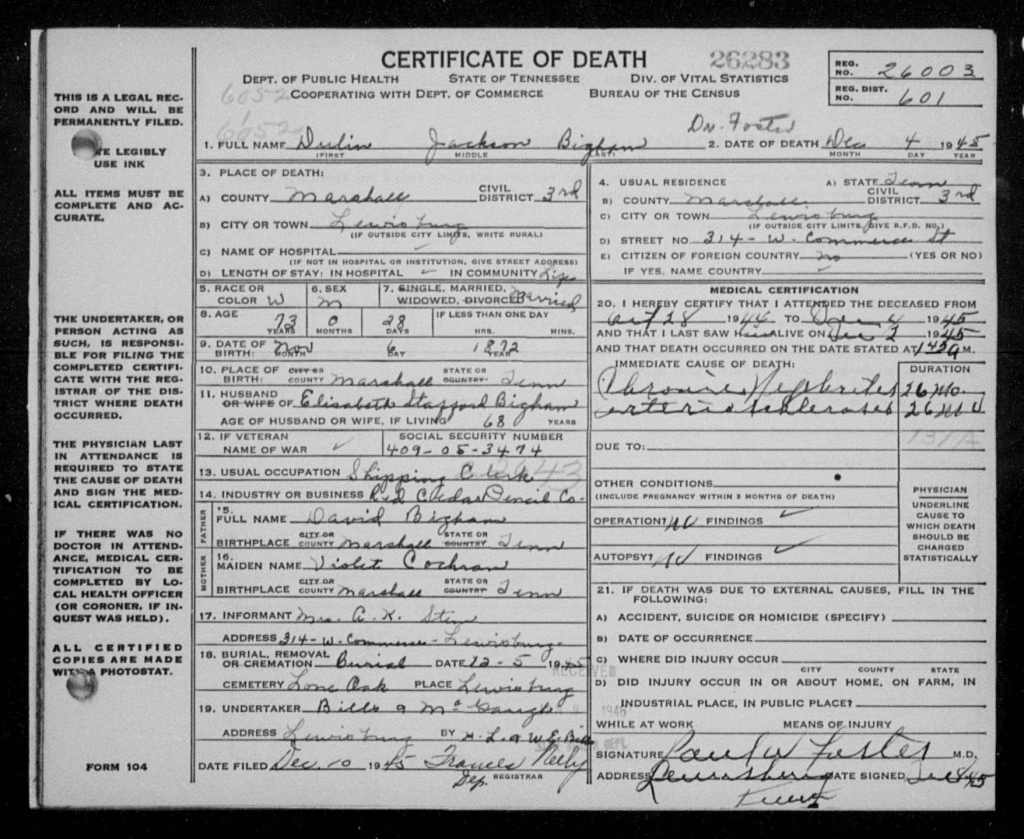 CERTIFICATE OF DEATH 26283
DEPT. OF PUBLIC HEALTH STATE OF TENNESSEE DIV. OF VITAL STATISTICS
COOPERATING WITH DEPT. OF COMMERCE BUREAU OF THE CENSUS
REG. NO. 26003
REG. DIST. NO. 601
6052
6052
Dr. Foster
1. FULL NAME Dulin Jackson Bigham 2. DATE OF DEATH Dec 4 1945
(FIRST MIDDLE LAST) MONTH DAY YEAR
THIS IS A LEGAL RECORD AND WILL BE PERMANENTLY FILED.
TE LEGIBLY
USE INK
ALL ITEMS MUST BE COMPLETE AND ACCURATE.
THE UNDERTAKER, OR PERSON ACTING AS SUCH, IS RESPONSIBLE FOR FILING THE COMPLETED CERTIFICATE WITH THE REGISTRAR OF THE DISTRICT WHERE DEATH OCCURRED.
THE PHYSICIAN LAST IN ATTENDANCE IS REQUIRED TO STATE THE CAUSE OF DEATH AND SIGN THE MEDICAL CERTIFICATION.
IF THERE WAS NO DOCTOR IN ATTENDANCE, MEDICAL CERTIFICATION TO BE COMPLETED BY LOCAL HEALTH OFFICER (OR CORONER, IF INQUEST WAS HELD).
ALL CERTIFIED COPIES ARE MADE WITH A PHOTOSTAT.
FORM 104
3. PLACE OF DEATH:
A) COUNTY Marshall CIVIL DISTRICT 3rd
B) CITY OR TOWN Lewisburg
(IF OUTSIDE CITY LIMITS, WRITE RURAL)
C) NAME OF HOSPITAL
(IF NOT IN HOSPITAL OR INSTITUTION, GIVE STREET ADDRESS)
D) LENGTH OF STAY: IN HOSPITAL ✓ IN COMMUNITY Life
5. RACE OR COLOR W 6. SEX M 7. SINGLE, MARRIED, WIDOWED, DIVORCED Married
8. AGE 73 YEARS 0 MONTHS 28 DAYS IF LESS THAN ONE DAY HRS. MINS.
9. DATE OF BIRTH: Nov 6 1872
MONTH DAY YEAR
10. PLACE OF BIRTH: CITY OR COUNTY Marshall STATE OR COUNTRY Tenn
11. HUSBAND OR WIFE OF Elisabeth Stafford Bigham
AGE OF HUSBAND OR WIFE, IF LIVING 68 YEARS
12. IF VETERAN NAME OF WAR ✓ SOCIAL SECURITY NUMBER 409-05-3474
13. USUAL OCCUPATION Shipping Clerk
14. INDUSTRY OR BUSINESS Red Cedar Pencil Co.
FATHER
15. FULL NAME David Bigham
BIRTHPLACE CITY OR COUNTY Marshall STATE OR COUNTRY Tenn
MOTHER
16. MAIDEN NAME Violet Cochran
BIRTHPLACE CITY OR COUNTY Marshall STATE OR COUNTRY Tenn
17. INFORMANT Mrs. A. K.
ADDRESS 314-W. Commerce-Lewisburg
18. BURIAL, REMOVAL OR CREMATION Burial DATE 12-5 1945
CEMETERY Lone Oak PLACE Lewisburg
RECEIVED
19. UNDERTAKER Bills &
ADDRESS Lewisburg BY H. L. & W. E. Bills
DATE FILED Dec. 10 1945 Frances Neely
Dep. REGISTRAR
4. USUAL RESIDENCE A) STATE Tenn
B) COUNTY Marshall CIVIL DISTRICT 3rd
C) CITY OR TOWN Lewisburg
(IF OUTSIDE CITY LIMITS, GIVE R.F.D. NO.)
D) STREET NO 314-W. Commerce St
E) CITIZEN OF FOREIGN COUNTRY no (YES OR NO)
IF YES, NAME COUNTRY ✓
MEDICAL CERTIFICATION
20. I HEREBY CERTIFY THAT I ATTENDED THE DECEASED FROM
Oct 28 1944 TO Dec 4 1945
AND THAT I LAST SAW him ALIVE ON Dec 2 1945
AND THAT DEATH OCCURRED ON THE DATE STATED AT M.
IMMEDIATE CAUSE OF DEATH: DURATION
Chronic Nephrites 26 Mo
arterio sclerosis 26 Mo
131A
DUE TO:
OTHER CONDITIONS
(INCLUDE PREGNANCY WITHIN 3 MONTHS OF DEATH)
OPERATION? No FINDINGS ✓
AUTOPSY? No FINDINGS ✓
PHYSICIAN
UNDERLINE CAUSE TO WHICH DEATH SHOULD BE CHARGED STATISTICALLY
21. IF DEATH WAS DUE TO EXTERNAL CAUSES, FILL IN THE FOLLOWING:
A) ACCIDENT, SUICIDE OR HOMICIDE (SPECIFY)
B) DATE OF OCCURRENCE
C) WHERE DID INJURY OCCUR
CITY COUNTY STATE
D) DID INJURY OCCUR IN OR ABOUT HOME, ON FARM, IN
INDUSTRIAL PLACE, IN PUBLIC PLACE?
WHILE AT WORK MEANS OF INJURY
SIGNATURE Paul W Foster M.D.
ADDRESS Lewisburg DATE SIGNED
Tenn